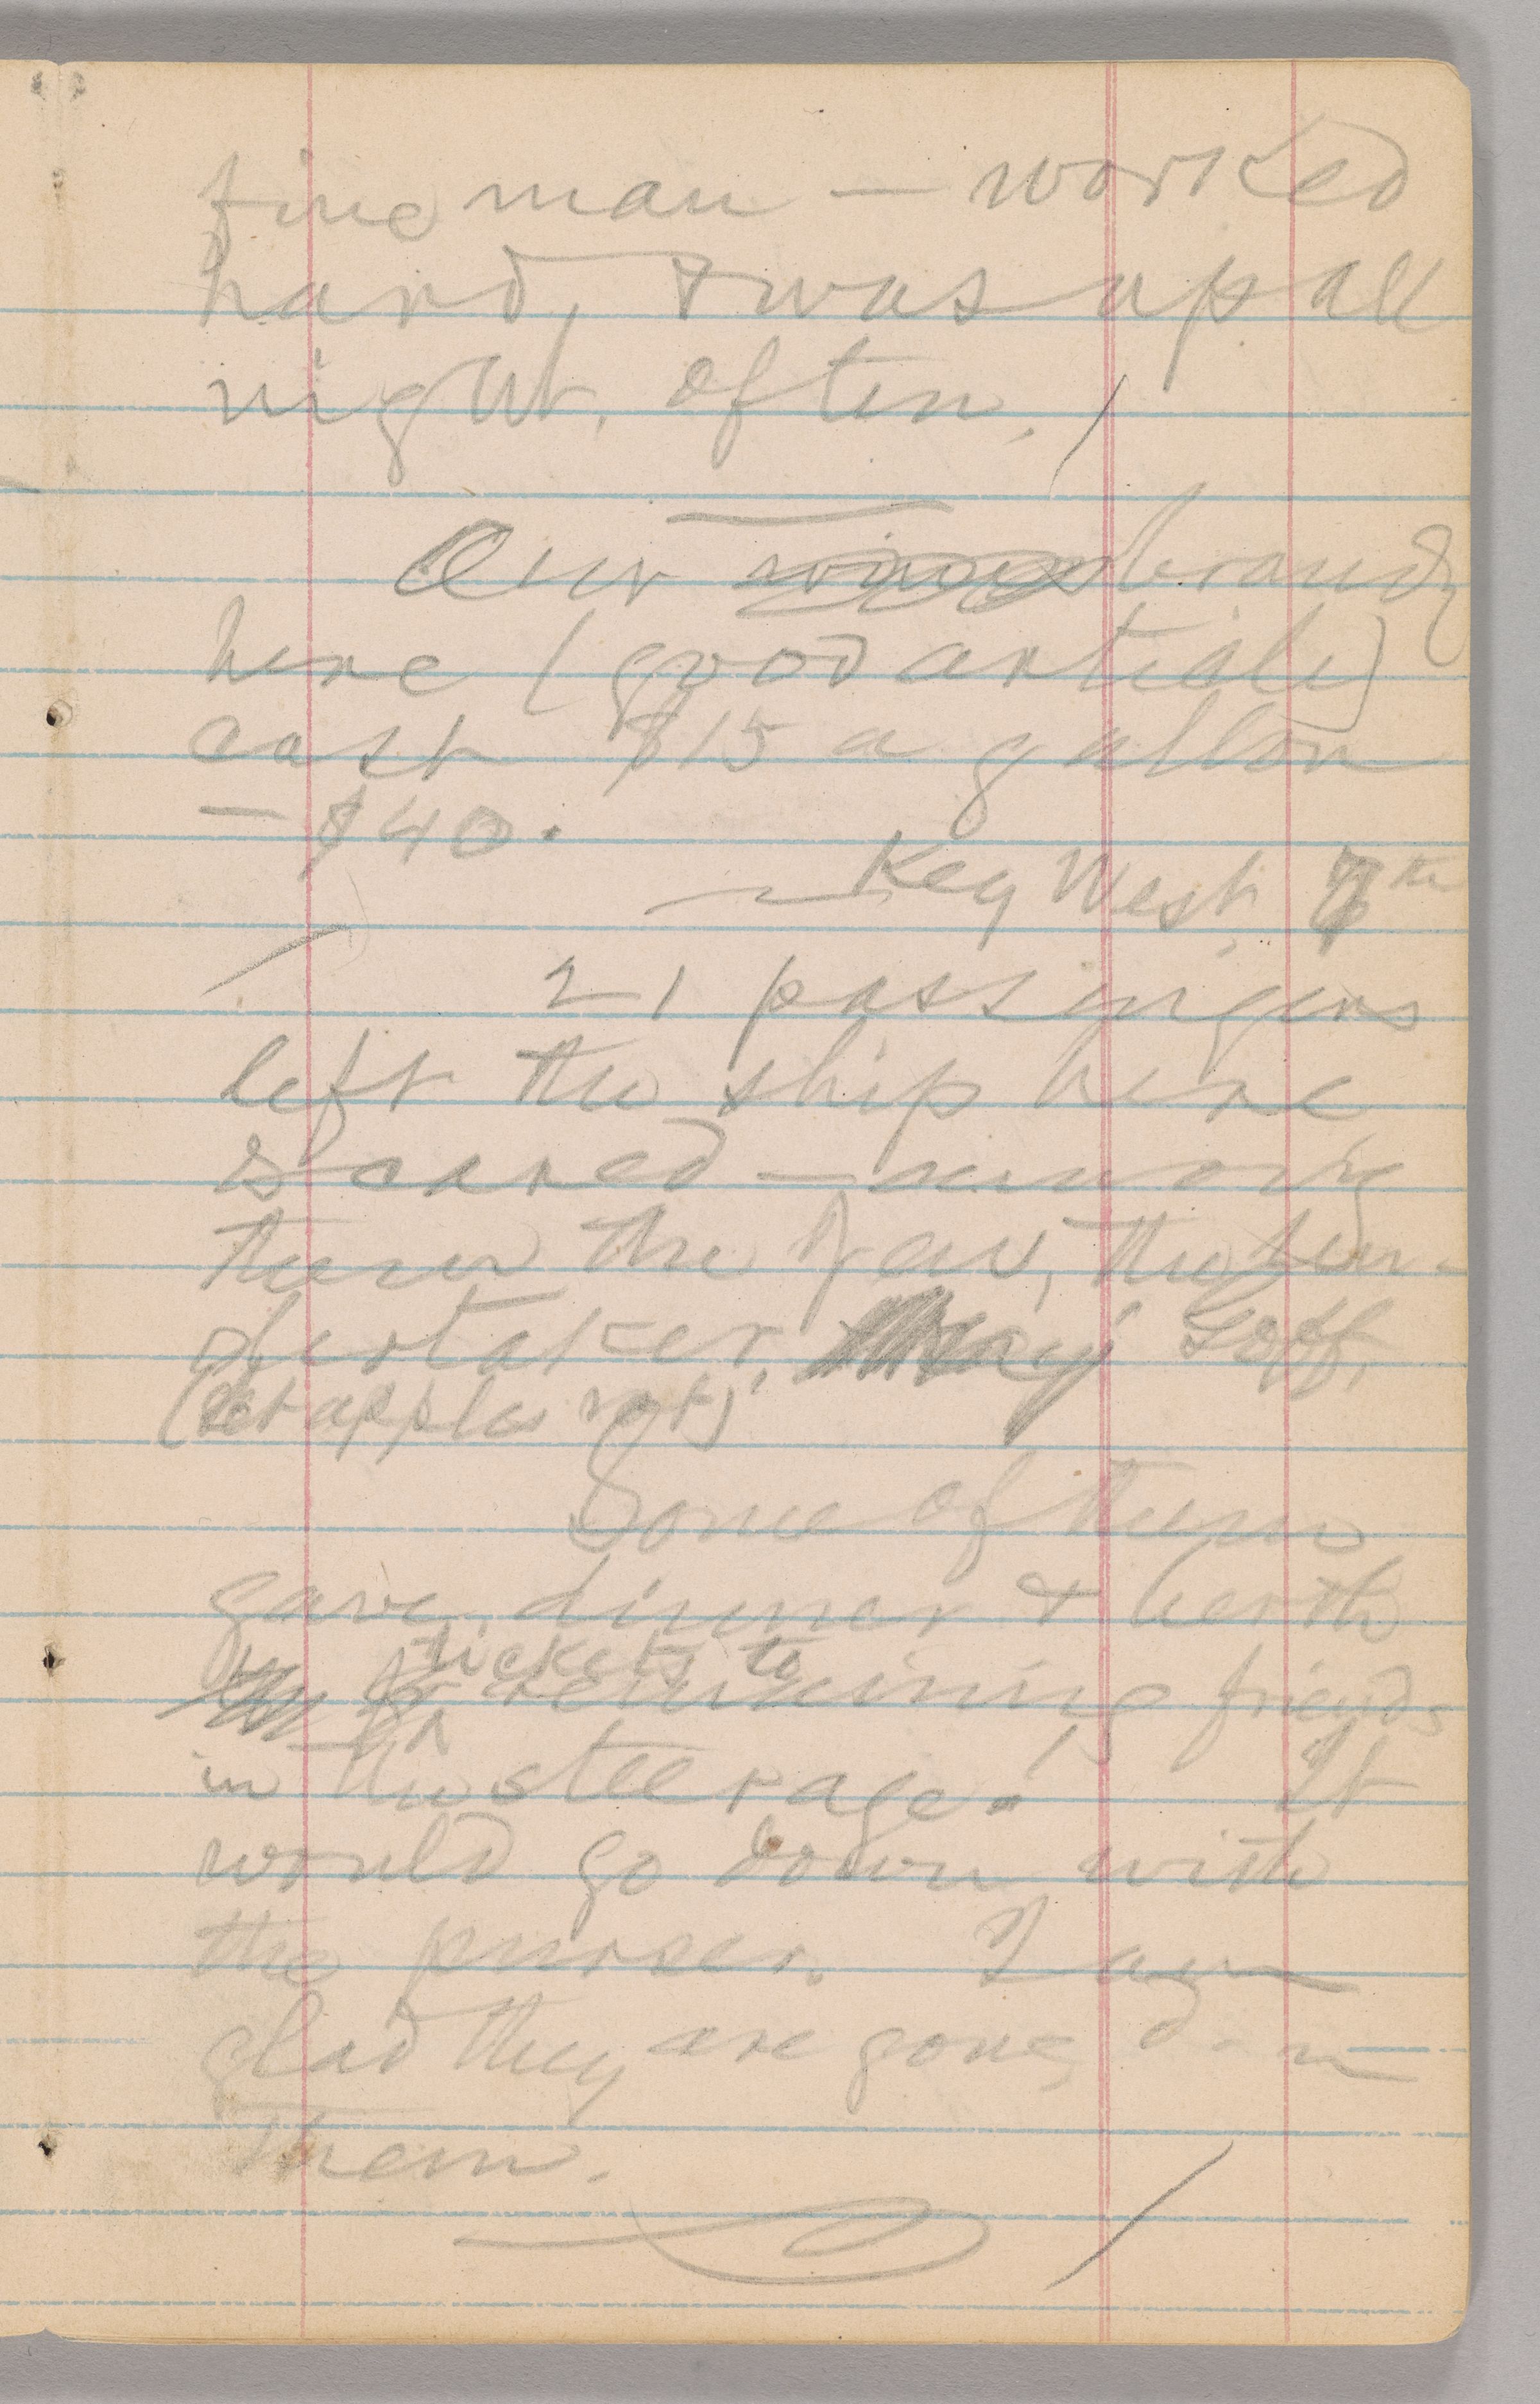 fine man — worked
hard, & was up all
night, often.
Our wines brandy
here (good article)
cost $15 a gallon
— $40.
— Key West, 7th
21 passengers
left the ship here
scared — among
them the Jew, the
dertaker, Goff,
(let apples rot)
Some of them
gave dinner & berth
tickets to
remaining friends
in the steerage. It
would go down with
the purser. I am
glad they are gone, d—n
them.